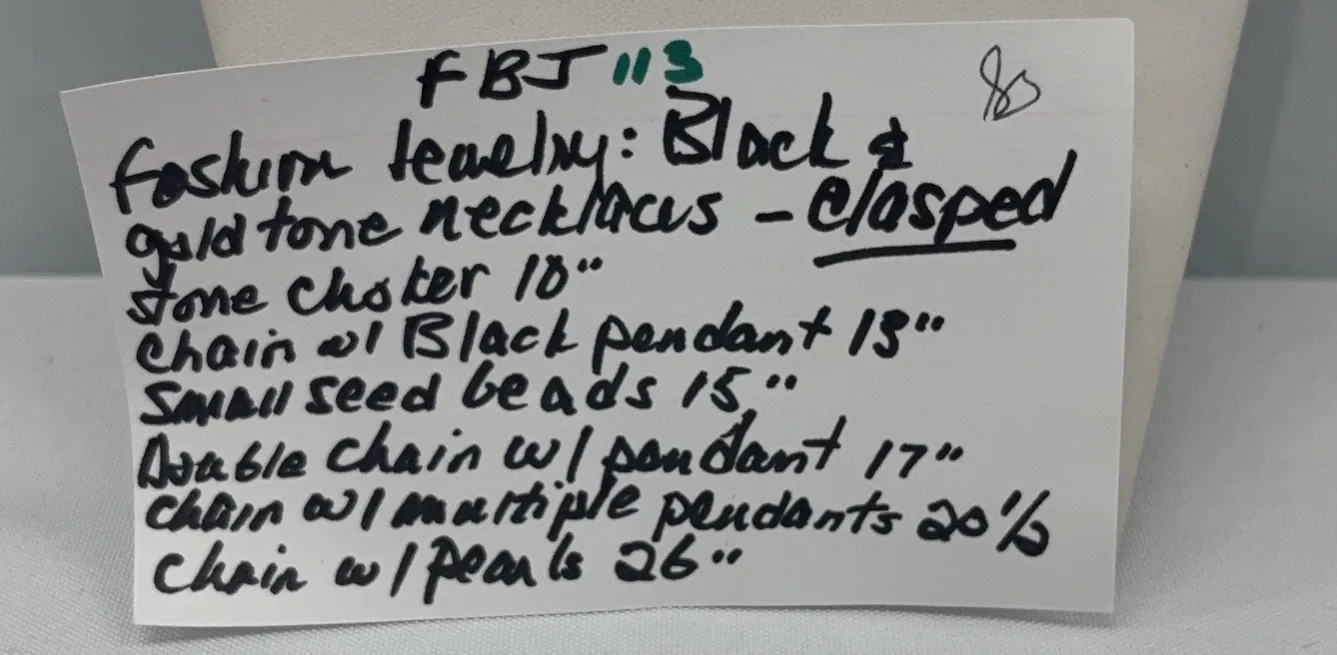 FBJ 113
fashion Jewelry: Black &
gold tone necklaces - clasped
stone choker 10"
chain w/ Black pendant 13"
small seed beads 15"
Double chain w/ pendant 17"
chain w/ multiple pendants 20 1/2
chain w/ pearls 26"